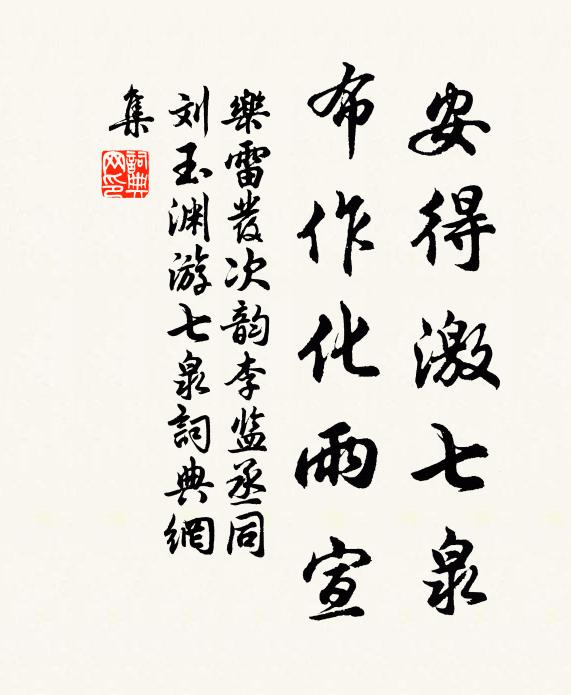 安得激七泉
布作化雨宣
樂雷發次韵李监丞同
刘玉渊游七泉詞典網
集
詞典网印